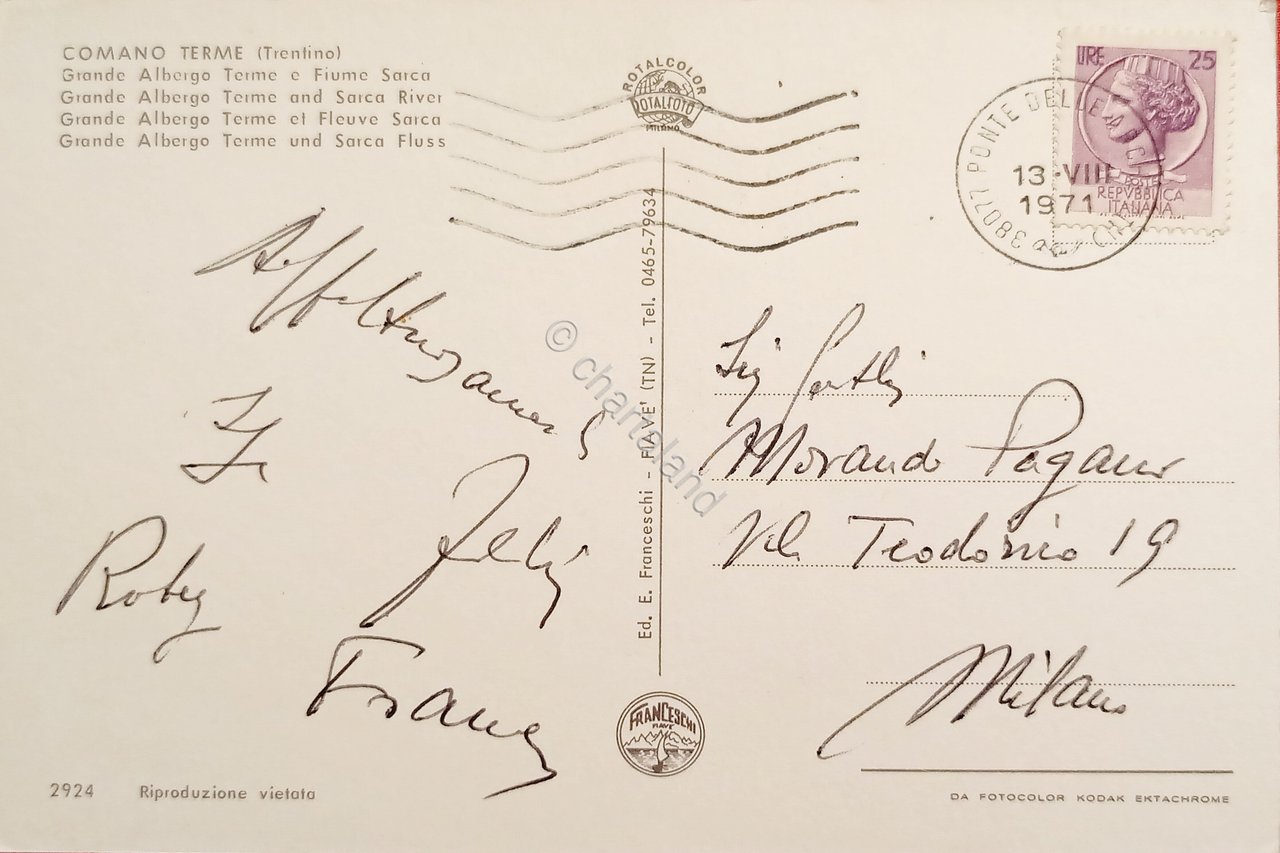 COMANO TERME (Trentino)
Grande Albergo Terme e Fiume Sarca
Grande Albergo Terme and Sarca River
Grande Albergo Terme et Fleuve Sarca
Grande Albergo Terme und Sarca Fluss
ROTALCOLOR
ROTALFOTO
MILANO
LIRE 25
POSTE
REPVBBLICA
ITALIANA
38077 PONTE DELLE ARCHE
13-VIII
1971
Affettuosamente
Roby
Franco
Ed. E. Franceschi - FIAVE' (TN) - Tel. 0465-79634
© chartaland
Morando Pagano
Vle Teodorico 19
Milano
FRANCESCHI
FIAVE
2924 Riproduzione vietata
DA FOTOCOLOR KODAK EKTACHROME